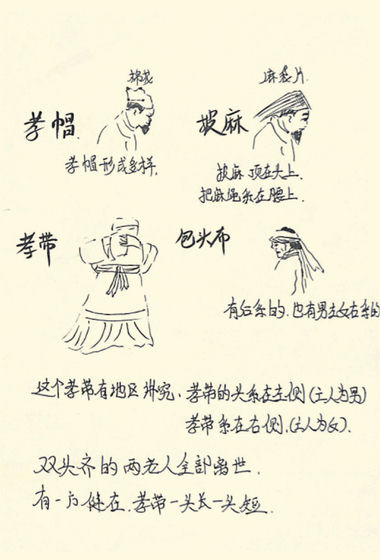 棉花
孝帽
孝帽形式多样.
麻袋片.
披麻
披麻 顶在头上.
把麻绳系在腰上.
孝带
包头布
有后系的.也有男左女右系的
这个孝带有地区讲究.孝带的头系在左侧(亡人为男)
孝带系在右侧.(亡人为女).
双头齐的两老人全部离世.
有一方健在.孝带一头长一头短.